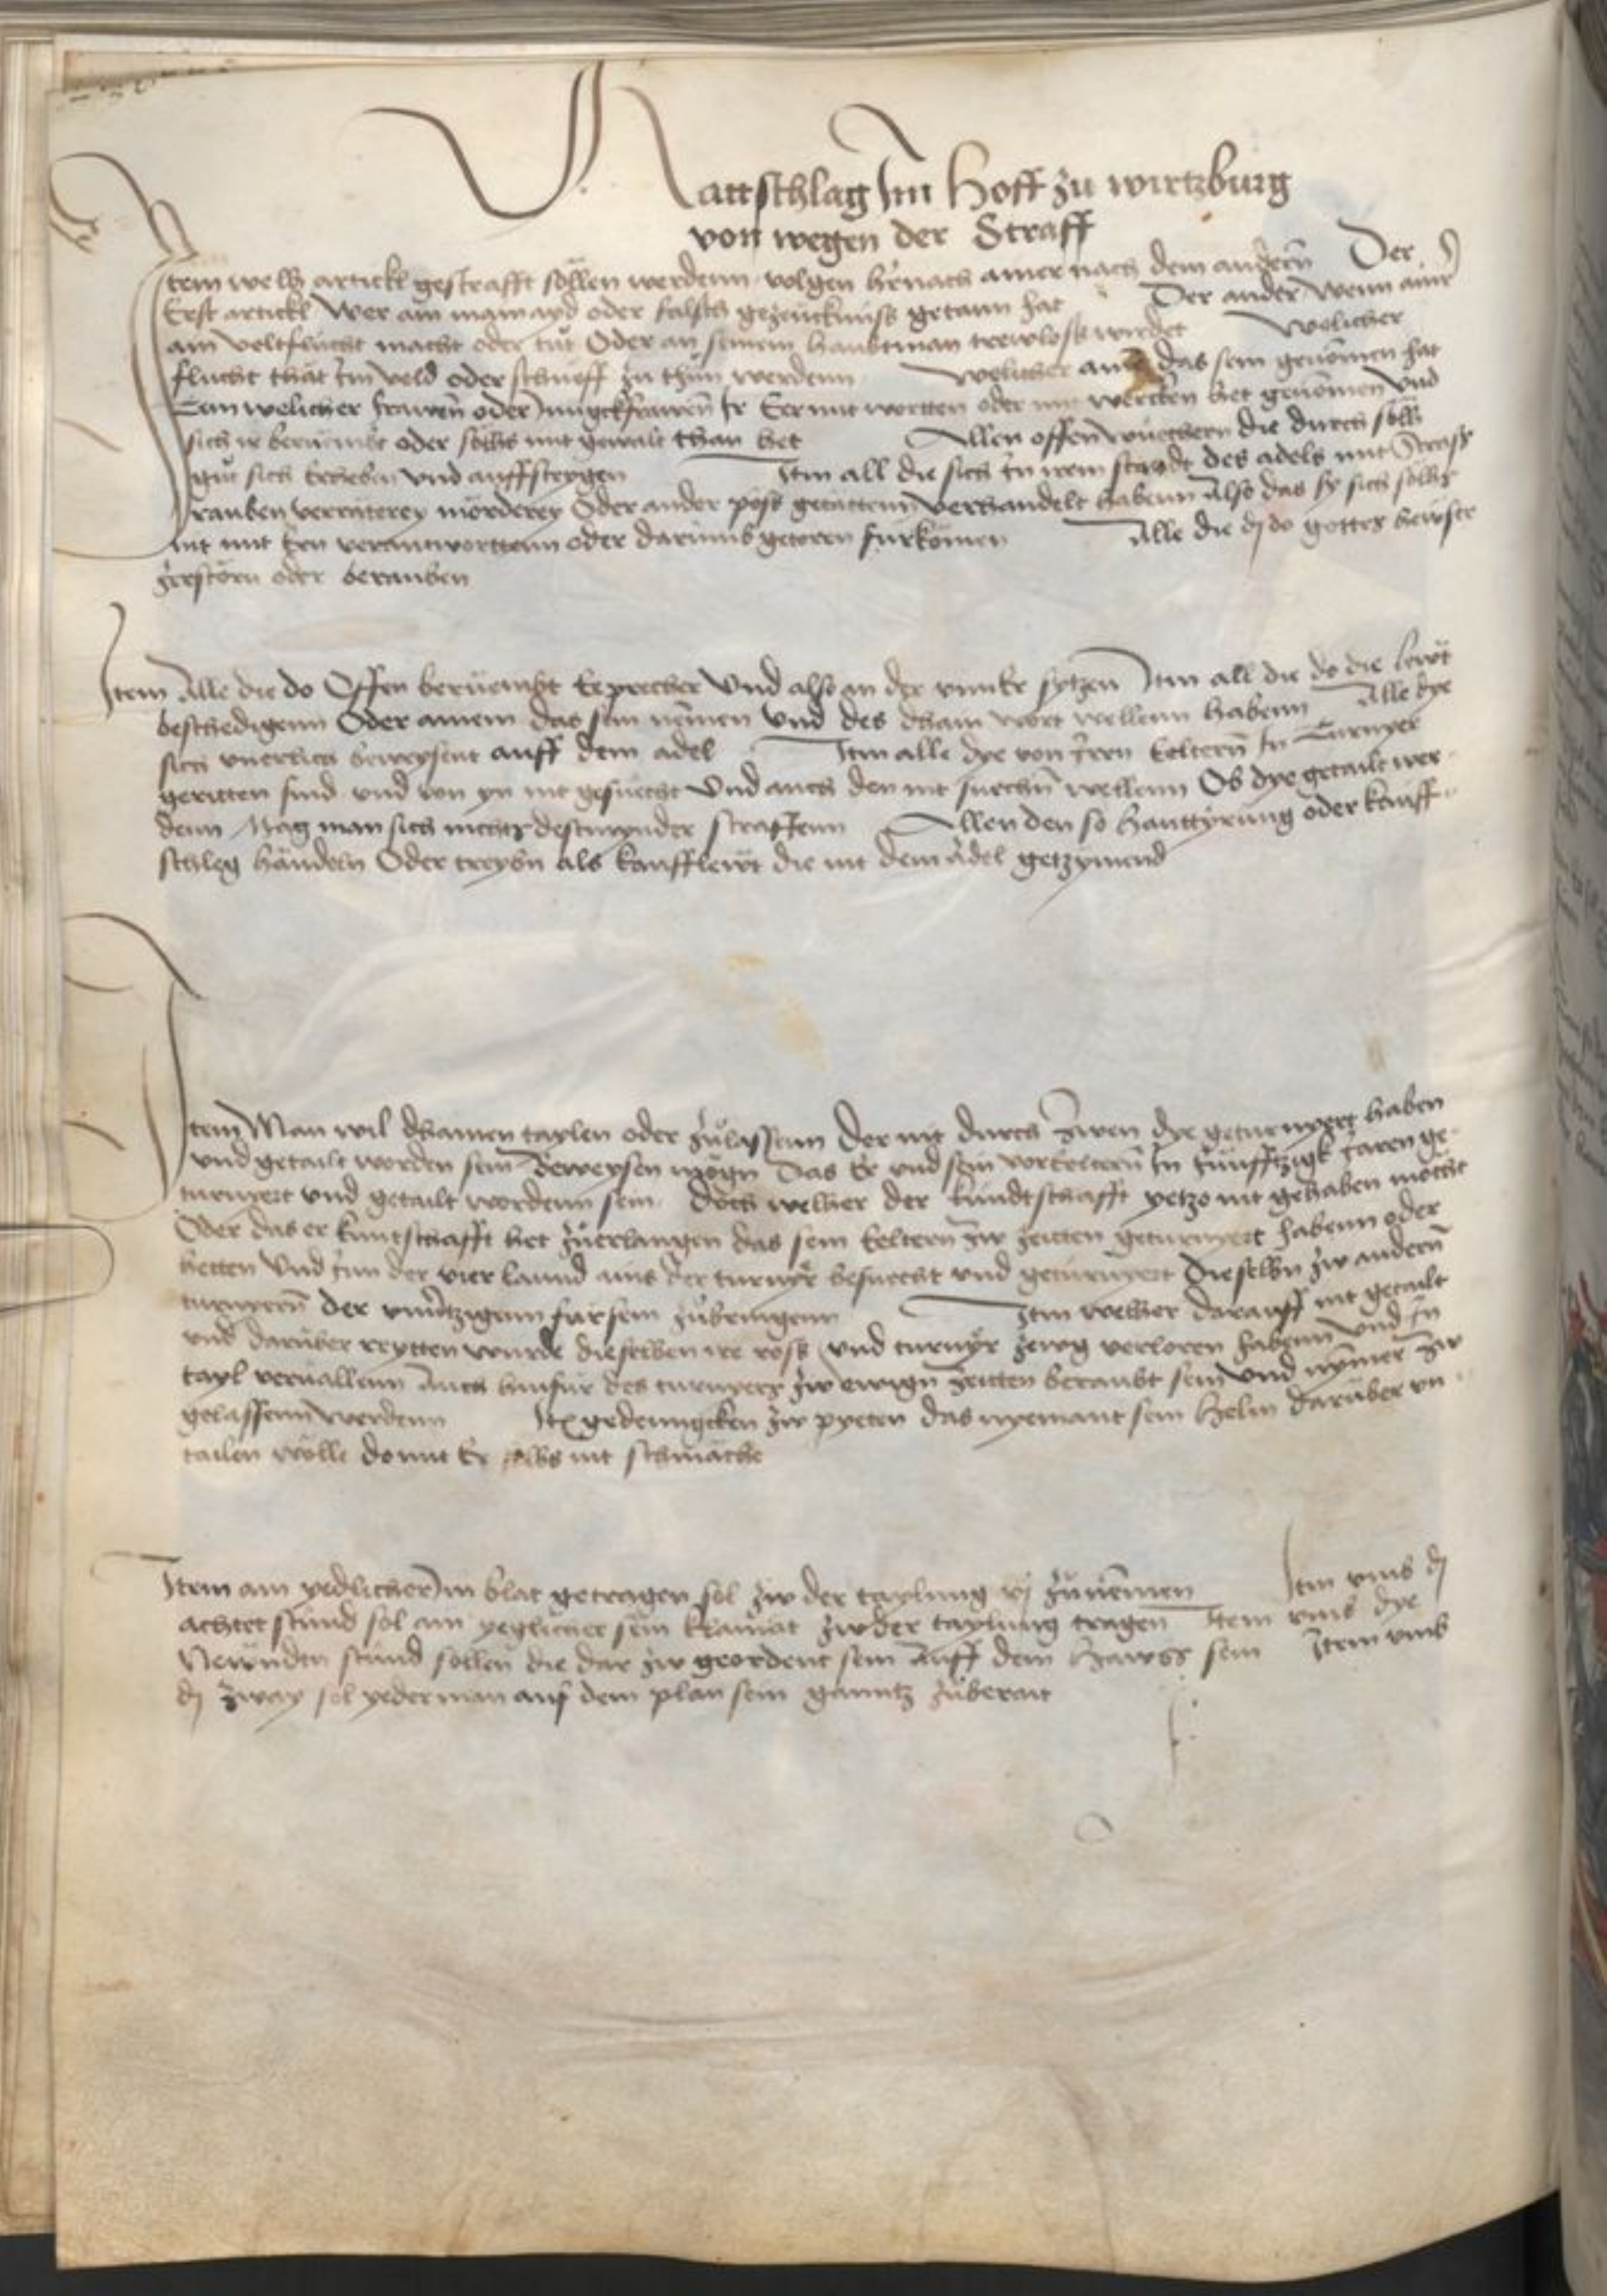 Rattschlag Im Hoff zu wirtzburg
von wegen der Straff
Item welh artickl gestrafft söllen werdenn volgen hernach ainer nach dem andern Der
Erst artickl Wer ain mainayd oder falsch gezeucknüss getann hat Der ander Wenn ainr
ain veltflücht macht oder tüt Oder an seinem haubtman trewloss wirdet Welicher
flucht thät Im veld oder schüeff zu thün werdenn Welicher das sein genomen hat
welicher frawen oder Junckfrawen Ir Eer mit wortten oder mit wercken het genomen Vnd
sich ir berüembt oder söllhs mit gewalt than het Allen offen wüechern die durch söllh
güt sich erheben vnd auffsteygen Itm all die sich In irem standt des adels mit Strass
rauben verräterey mörderey Oder ander pöss getättenn verhandelt habenn Also das sy sich söllhs
nit mit Eren verantworttenn oder darumb getören fürkömen Alle die do gottes hewser
zerstörn oder berauben
Item Alle die do Offen berüembt Eeprecher Vnd also an der vnnee sytzen Itm all die do die lewt
beschedigenn Oder ainem das sein nemen Vnd des kain wort wellenn habenn Alle dye
sich vnerlich beweysent auff dem adel Itm alle dye von Iren Eeltern In Turnyer
geritten sind vnd von yn nit gesuecht Vnd auch den nit suechn wellenn Ob dye getailt wer
denn Mag man sich nichts destmynder straffenn Allen den so hanttyrung oder kauff
schleg händeln Oder treybn als kauffleüt die nit dem Adel getzymend
Item Man wil khainen taylen oder zülassenn Der nit durch zwen dye geturnyert haben
vnd getailt worden sein Beweysen mögn Das Er vnd sein vorEeltern In fünfftzigk Jaren ge
turnyert vnd getailt wordenn sein Doch welher der kundtschafft yetzo nit gehaben möcht
Oder das er kuntschafft het züerlangen das sein Eeltern zw zeitten geturnyert habenn oder
hetten Vnd Inn der vier lannd ains der turnyr besuecht vnd geturnyert Dieselbn zw andern
turnyern der für sein zübringenn Itm welher darauff nit getailt
vnd darüber reytten wurde dieselben ire ross vnd turnyr zewg verloren habenn vnd In
tayl veruallenn Auch hinfür des turnyers zw ewign zeitten beraubt sein Vnd nymer zw
gelassenn werdenn Itm gedenngcken zw pyeten das nyemant sein Helm darüber vn
tailen wölle domit Er selbs nit schmäche
Item ain yedlicher Im blat getragen sol zw der taylung vj zünemen Itm vmb dj
achtet stund sol ain yeglicher sein klainat zw der taylung tragen Item vmb dye
Newndtn stund sollen die dar zw geordent sein Auff dem Hawss sein Item vmb
dj zway sol yederman auf dem plan sein ganntz züberait